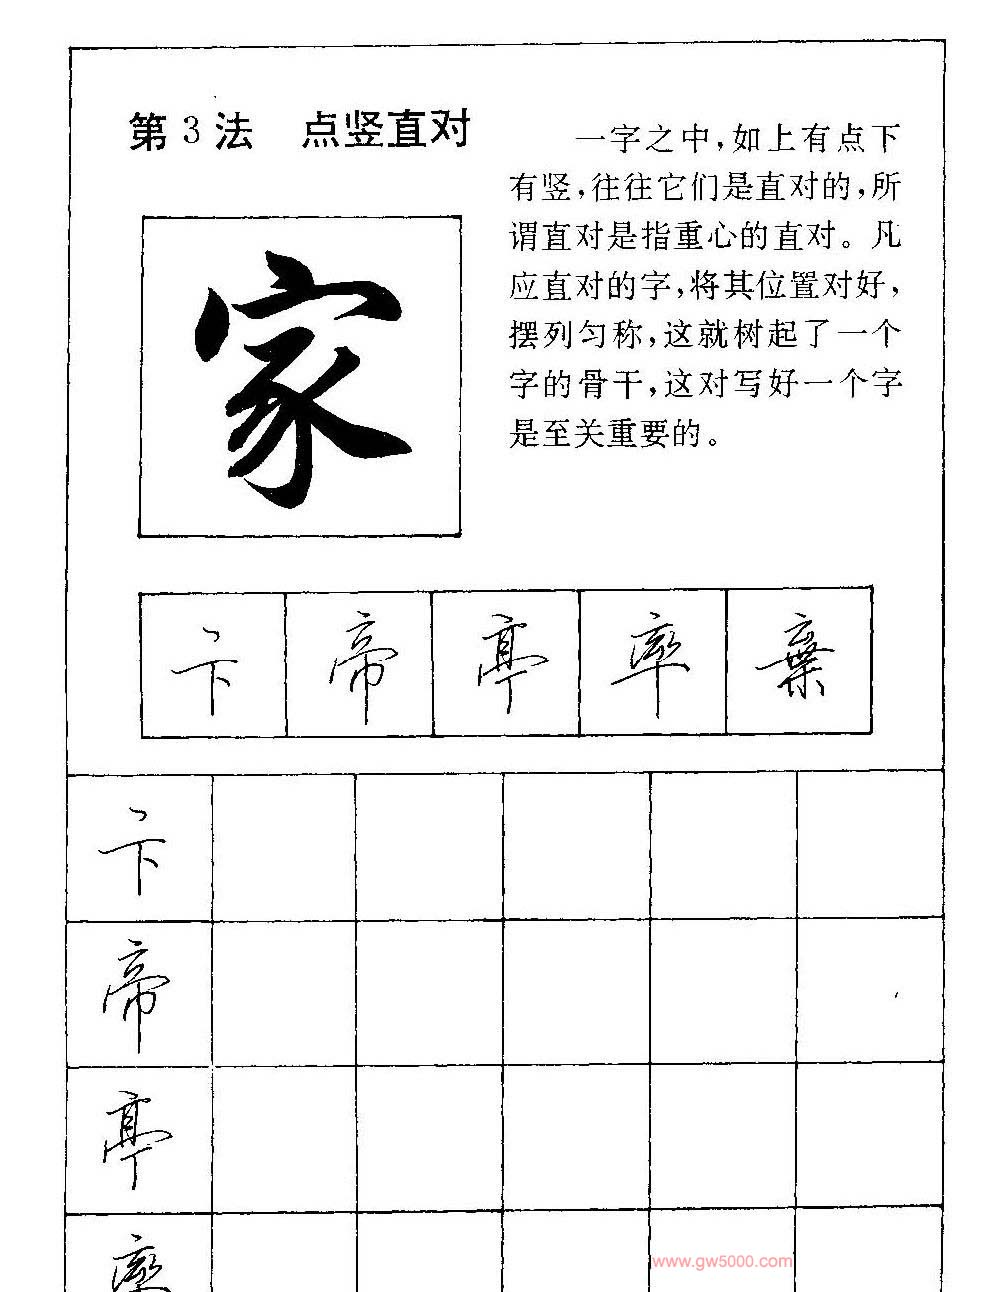 第3法 点竖直对
一字之中,如上有点下
有竖,往往它们是直对的,所
谓直对是指重心的直对。凡
应直对的字,将其位置对好,
摆列匀称,这就树起了一个
字的骨干,这对写好一个字
是至关重要的。
家
卞 帝 亭 率 棄
卞
帝
亭
率
www.gw5000.com